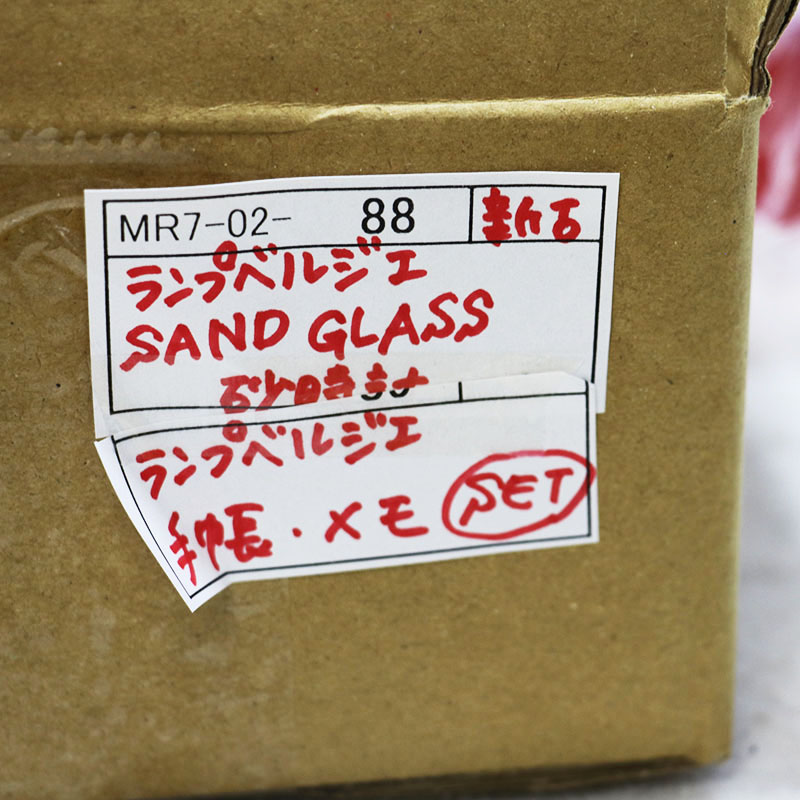 MR7-02- 88 新古
ランプベルジェ
SAND GLASS
砂時計
ランプベルジェ
手帳・メモ SET